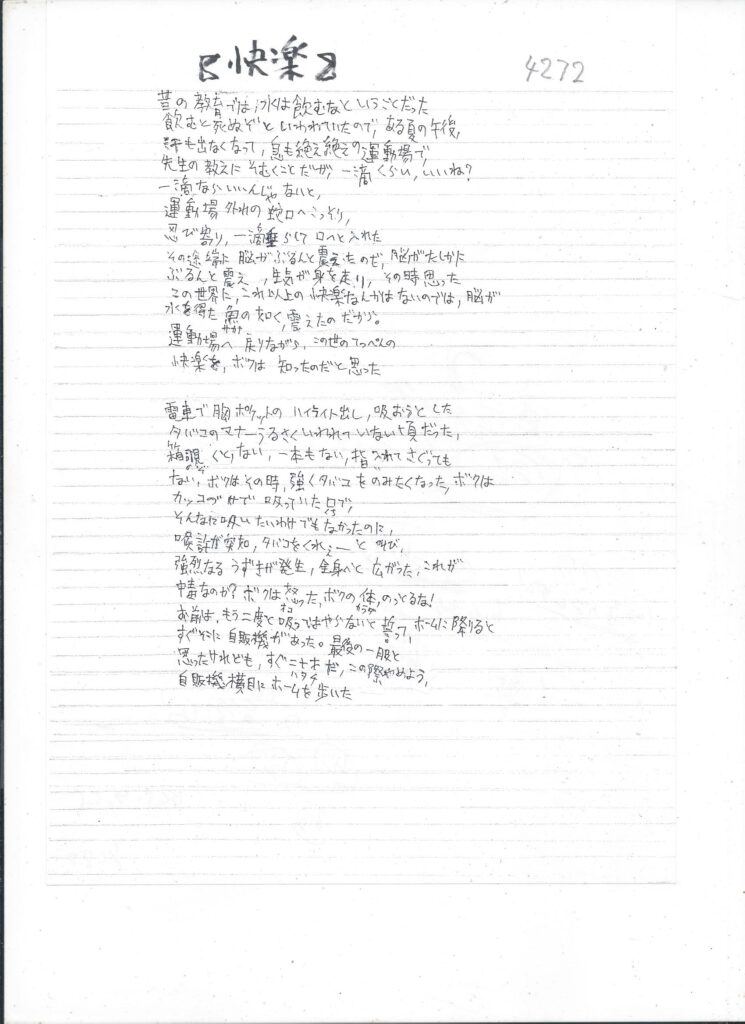 【快楽】
4272
昔の教育では水は飲むなということだった
飲むと死ぬぞといわれていたので、ある夏の午後、
汗も出なくなって、息も絶え絶えの運動場で、
先生の教えにそむくことだが、一滴くらい、いいね?
一滴ならいいんじゃないと、
運動場外れの蛇口へこっそり、
忍び寄り、一滴垂らして口へと入れた
その途端に脳がぶるんと震えたのだ、脳がたしかに
ぶるんと震え、生気が身を走り、その時思った
この世界に、これ以上の快楽なんかはないのでは、脳が
水を得た魚の如く、震えたのだから。
サカナ
運動場へ戻りながら、この世のてっぺんの
快楽を、ボクは知ったのだと思った
電車で胸ポケットのハイライト出し、吸おうとした
タバコのマナーうるさくいわれていない頃だった、
箱覗くと、ない、一本もない、指入れてさぐっても
のぞ
ない、ボクはその時、強くタバコをのみたくなった、ボクは
カッコづけで吸っていた口で、
くち
そんなに吸いたいわけでもなかったのに、
喉許が突如、タバコをくれぇーと叫び、
強烈なるうずきが発生、全身へと広がった、これが
中毒なのか?ボクは怒った、ボクの体、のっとるな!
オコ
カラダ
お前は、もう二度と吸ってはやらないと誓って、ホームに降りると
すぐそこに自販機があった。最後の一服と
思ったけれども、すぐ二十才だ、この際やめよう、
ハタチ
自販機横目にホームを歩いた